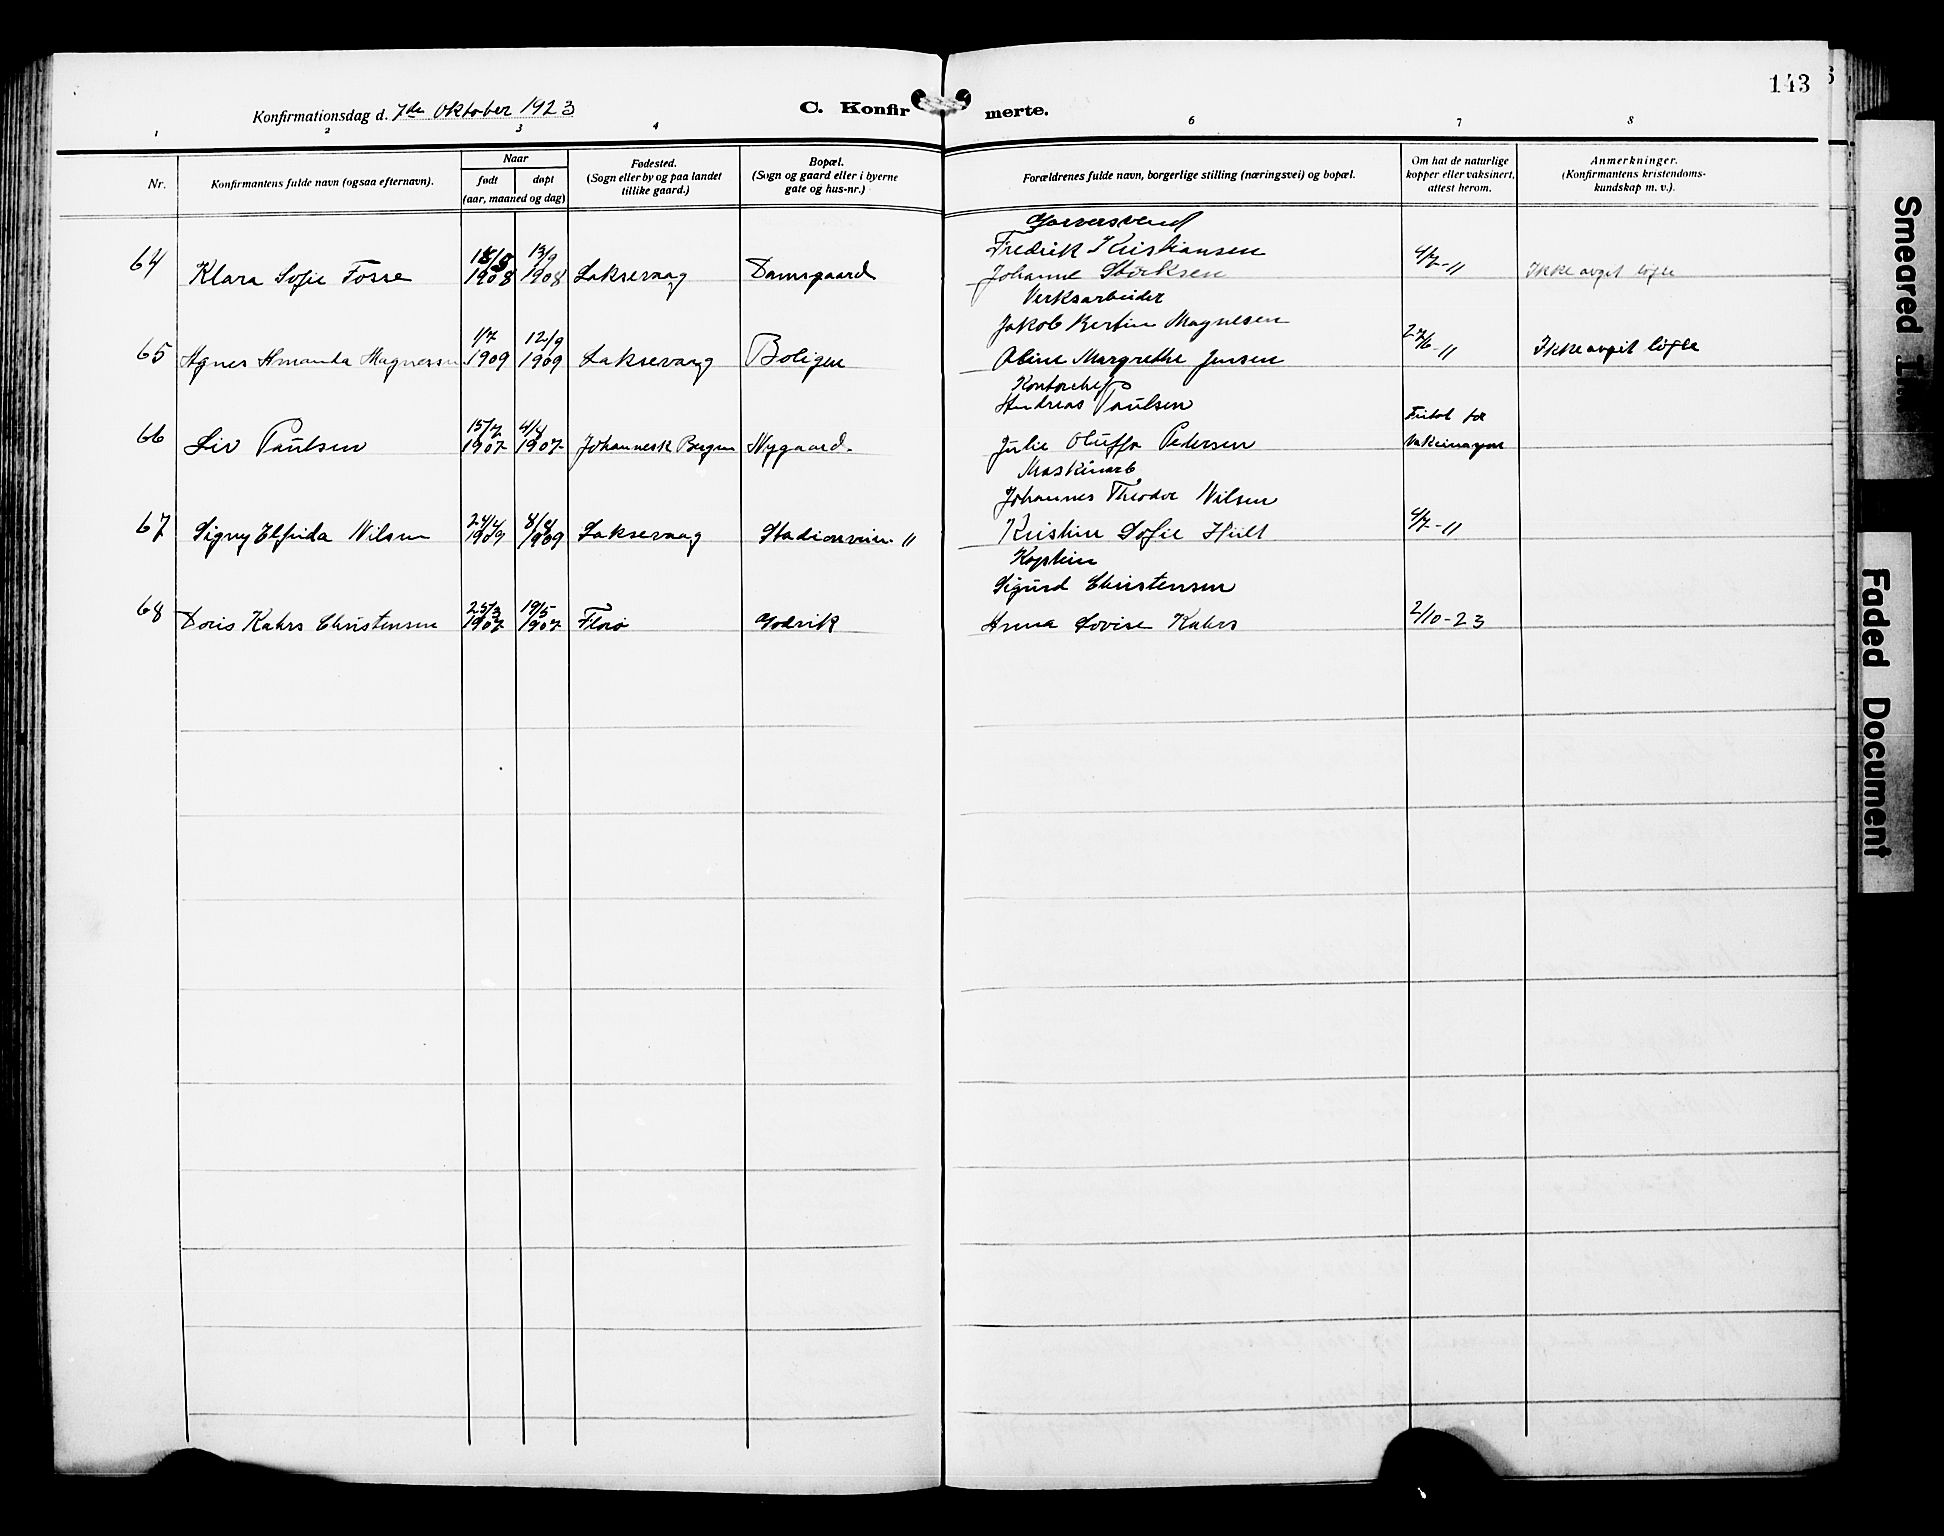 143
Konfirmationsdag d. 7de Oktober 1923
C. Konfirmerte.
1 2 3 4 6 7 8
Nr.
Konfirmantens fulde navn (ogsaa efternavn).
Naar
født døpt
(aar, maaned og dag)
Fødested.
(Sogn eller by og paa landet
tillike gaard.)
Bopæl.
(Sogn og gaard eller i byerne
gate og hus-nr.)
Forældrenes fulde navn, borgerlige stilling (næringsvei) og bopæl.
Om hat de naturlige
kopper eller vaksinert,
attest herom.
Anmerkninger.
(Konfirmantens kristendoms-
kundskap m. v.).
Garversvend
Fredrik Kristiansen
64 Klara Sofie Fosse 1908 13/9 1908 Laksevaag Damsgaard Johanne Størksen 4/7-11 Ikke avgit løfte
Verksarbeider
Jakob Bertin Magnesen
65 Agnes Amanda Magnesen 1/7 1909 12/9 1909 Laksevaag Boligen Oline Margrethe Jensen 27/6-11 Ikke avgit løfte
Kontorchef
Andreas Paulsen
66 Liv Paulsen 15/2 1907 4/4 1907 Johannesk Bergen Nygaard. Julie Oluffa Pedersen
Maskinarb
Johannes Theodor Nilsen
67 Signy Elfrida Nilsen 24/4 1909 8/8 1909 Laksevaag Stadionveien 11 Kristine Sofie 4/7-11
Kaptein
Sigurd Christensen
68 Doris Kahrs Christensen 25/3 1907 19/5 1907 Florø Godvik Anna Lovise Kahrs 2/10-23
Smeared
Faded Document